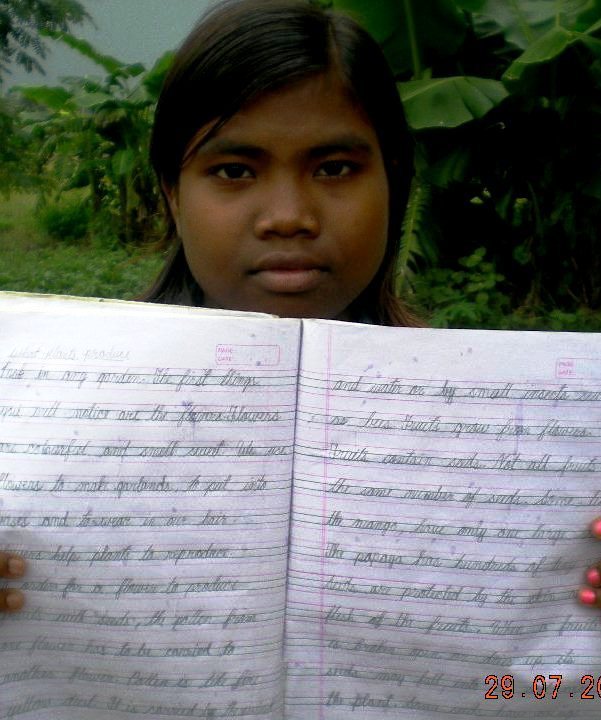 What plants produce
in any garden. The first things
you will notice are the flowers. Flowers
are colourful and smell sweet. We use
flowers to make garlands, to put into
and to wear in our hair.
help plants to reproduce.
order for a flower to produce
seeds, the pollen from
one flower has to be carried to
another flower. Pollen is like fine
yellow dust. It is carried by the wind
PAGE
DATE
and water or by small insects such
as bees. Fruits grow from flowers.
Fruits contain seeds. Not all fruits
the same number of seeds. Some like
the mango, have only one large
The papaya has hundreds of
Seeds are protected by the skin
flesh of the fruits. When a fruit
is broken open or dries up, its
seeds may fall
the plant.
PAGE
DATE
29.07.20